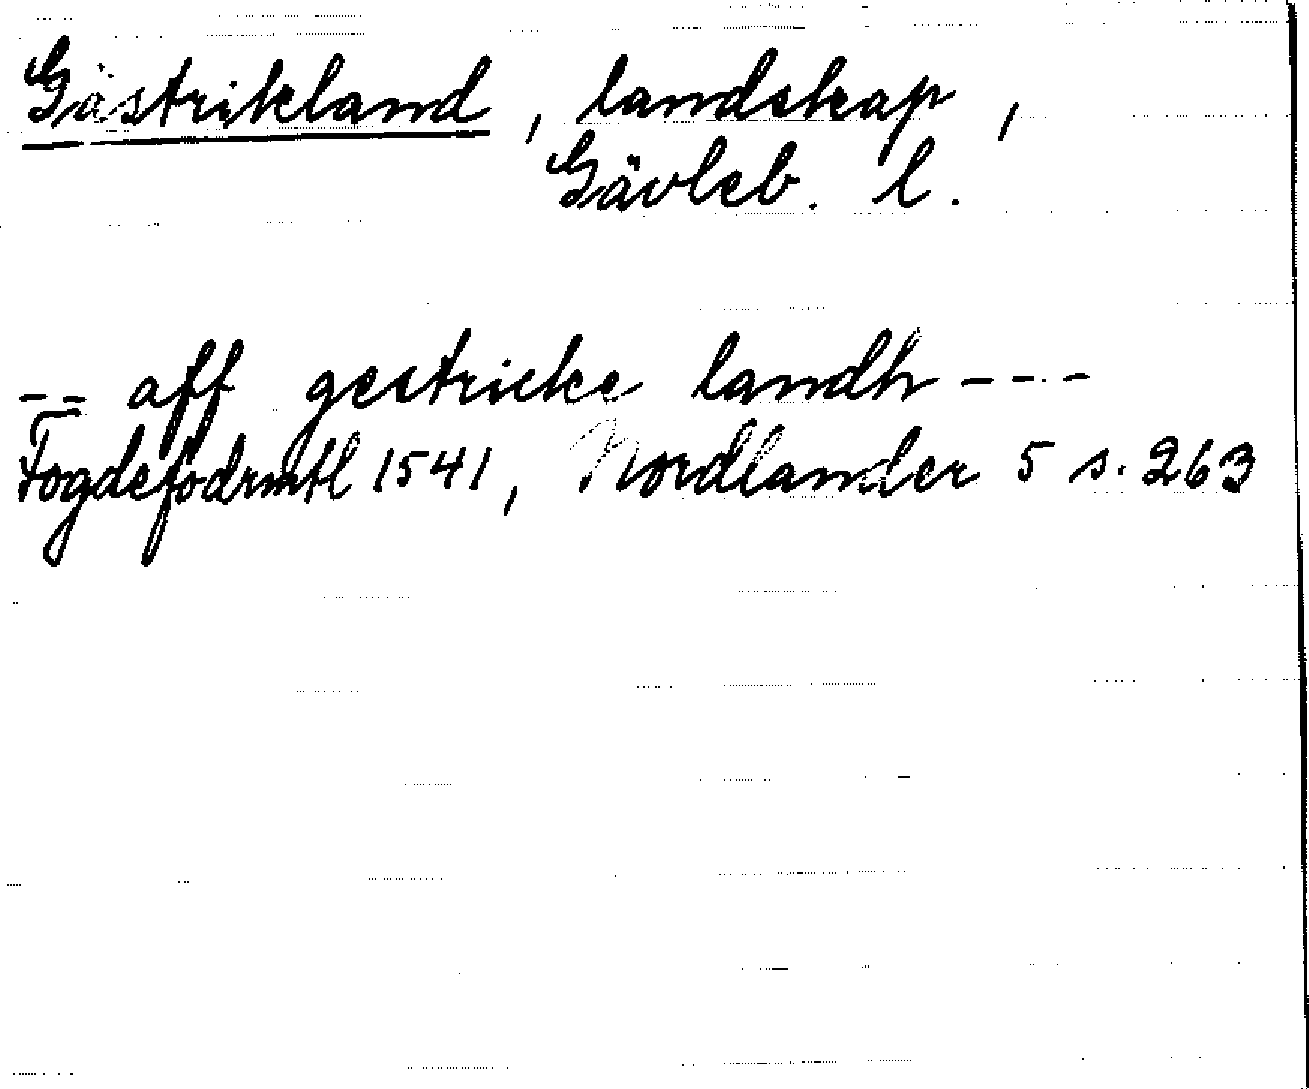 Gästrikland, landskap,
Gävleb. l.
-- aff gestricke landh ----
Fogdefodrmtl 1541, Nordlander 5 s. 263